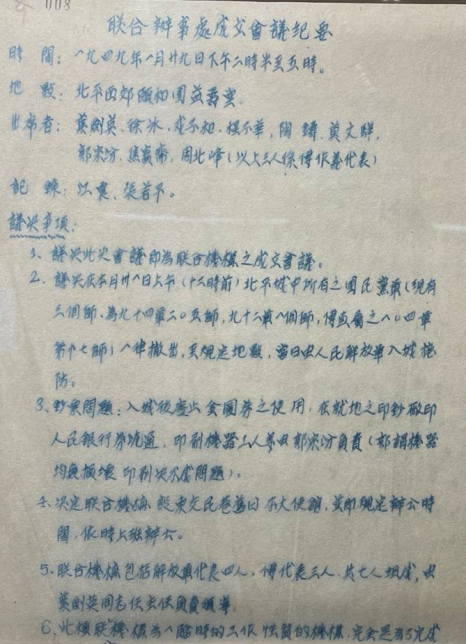 008
联合辦事處成立會議紀要
時 間：一九四九年一月廿九日下午二時半至五時。
地 點：北平西郊頤和園益壽堂
出席者：葉劍英、徐冰、戎子和、陶鑄、
郭宗汾、焦實齋、周北峰（以上三人係傅作義代表）
記 錄：
議決事項：
1、議決此次會議即為联合機構之成立會議。
2、議決在本月卅一日上午（十二時前）北平城中所有之國民黨軍（現有
三個師，為九十四軍二〇五師，九十二軍一個師，傅直屬之一〇四軍
一律撤出，至規定地點，當日由人民解放軍入城接
防。
3、鈔票問題：入城後廢止金圓券之使用，在就地之印鈔廠印
人民銀行券流通，印刷機器工人等由郭宗汾負責（郭謂機器
均無損壞 印刷決不成問題）。
4、決定联合機構設東交民巷舊日 大使館，並即規定辦公時
間，依時上班辦公。
5、联合機構包括解放軍代表四人，傅代表三人，共七人組成，由
葉劍英同志任主任負責領導。
6、此種联合機構為一臨時的工作性質的機構，完全是為了完成